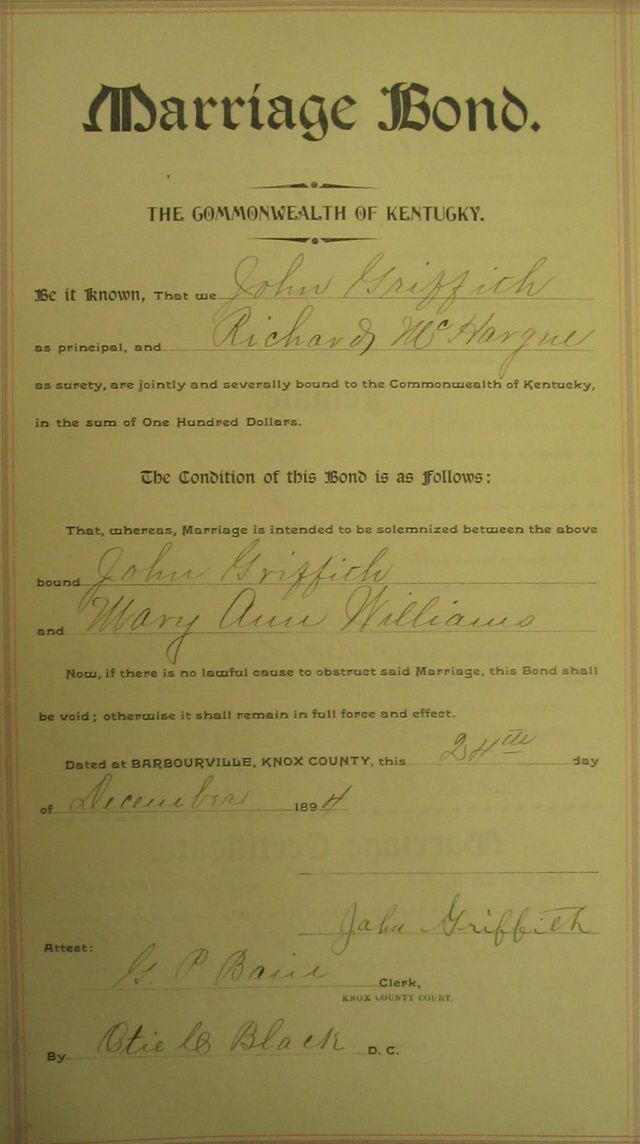 Marriage Bond.
THE COMMONWEALTH OF KENTUCKY.
Be it Known, That we John Griffith
as principal, and Richard McHargue
as surety, are jointly and severally bound to the Commonwealth of Kentucky,
in the sum of One Hundred Dollars.
The Condition of this Bond is as Follows:
That, whereas, Marriage is intended to be solemnized between the above
bound John Griffith
and Mary Ann Williams
Now, if there is no lawful cause to obstruct said Marriage, this Bond shall
be void; otherwise it shall remain in full force and effect.
Dated at BARBOURVILLE, KNOX COUNTY, this 24th day
of December 1894
John Griffith
Attest:
G. P. Clerk,
KNOX COUNTY COURT.
By Black D. C.